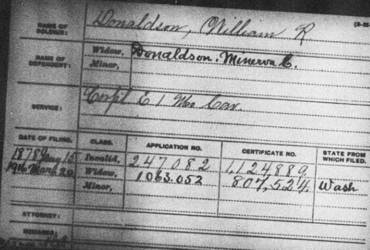 NAME OF SOLDIER: Donaldson, William R
NAME OF DEPENDENT: Widow, Donaldson, Minerva C.
Minor,
SERVICE: Corpl E 1 Mo Cav.
DATE OF FILING. CLASS. APPLICATION NO. CERTIFICATE NO. STATE FROM WHICH FILED.
1878 Aug 15 Invalid, 247.082 1,124,889,
1916 March 20 Widow, 1063.052 807,524, Wash
Minor,
ATTORNEY:
REMARKS: